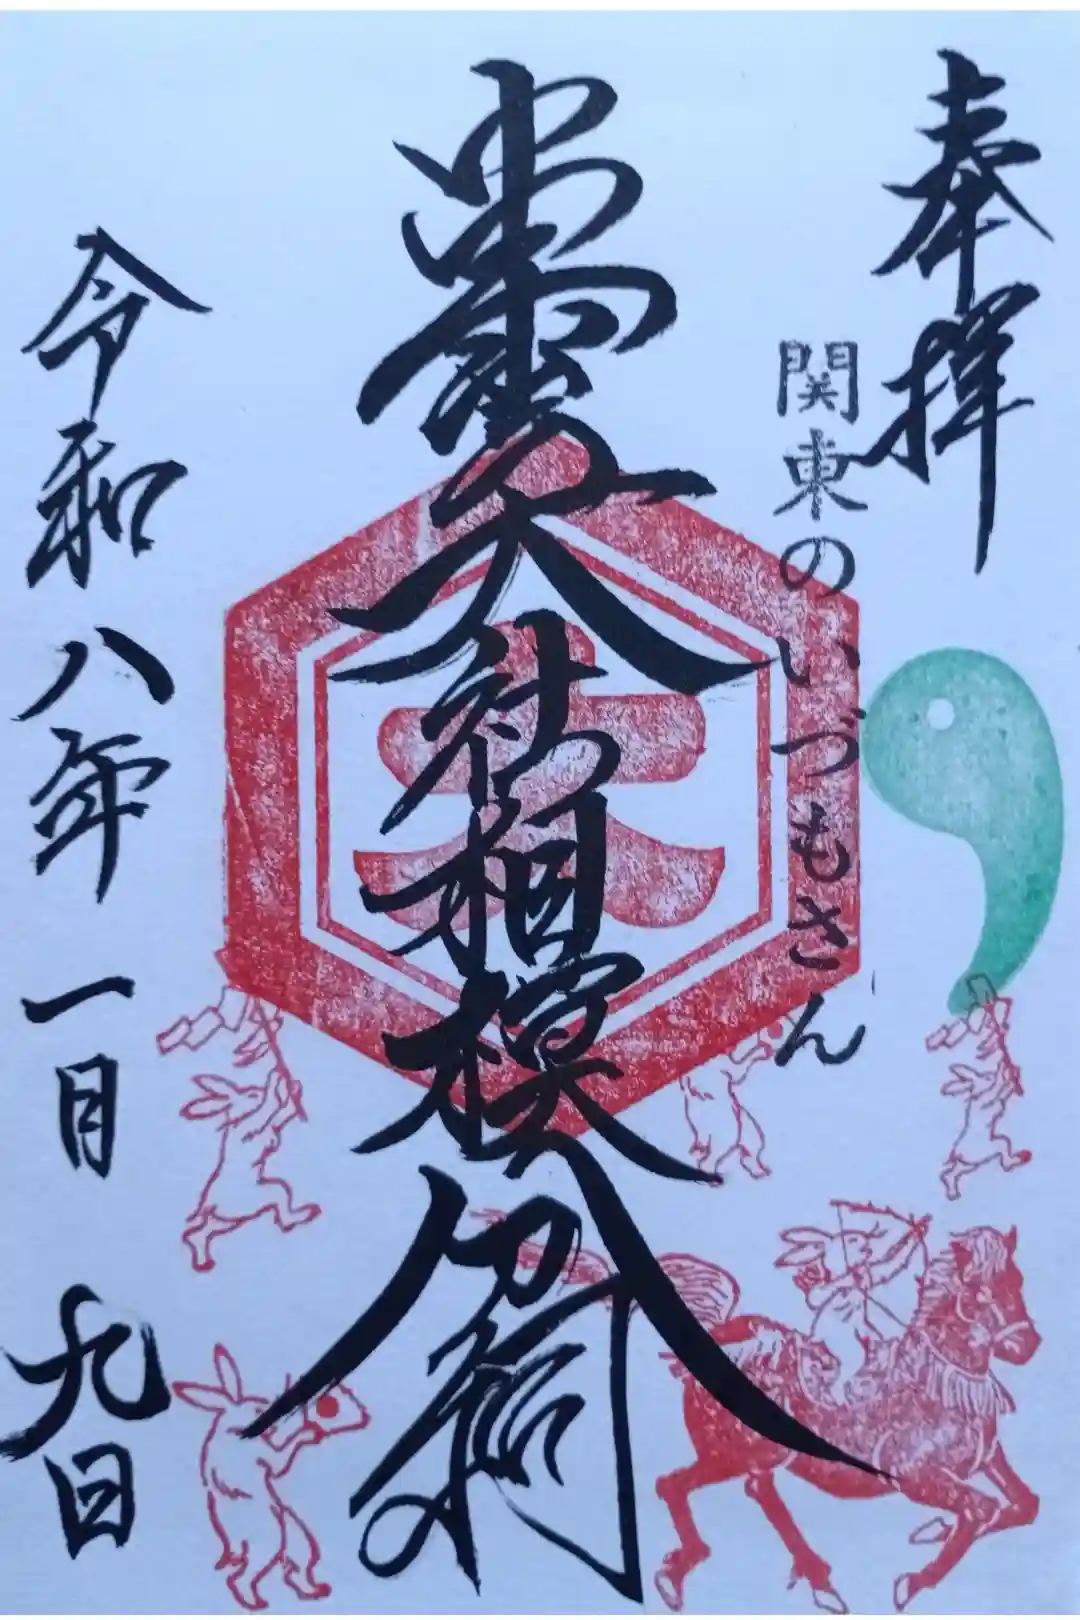 奉拝
関東のいづもさん
出雲大社相模分祠
大
令和八年一月九日